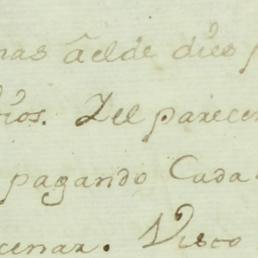 nas âel de dies p
ios. Y el parecer
pagando Cada
cenar. Visto